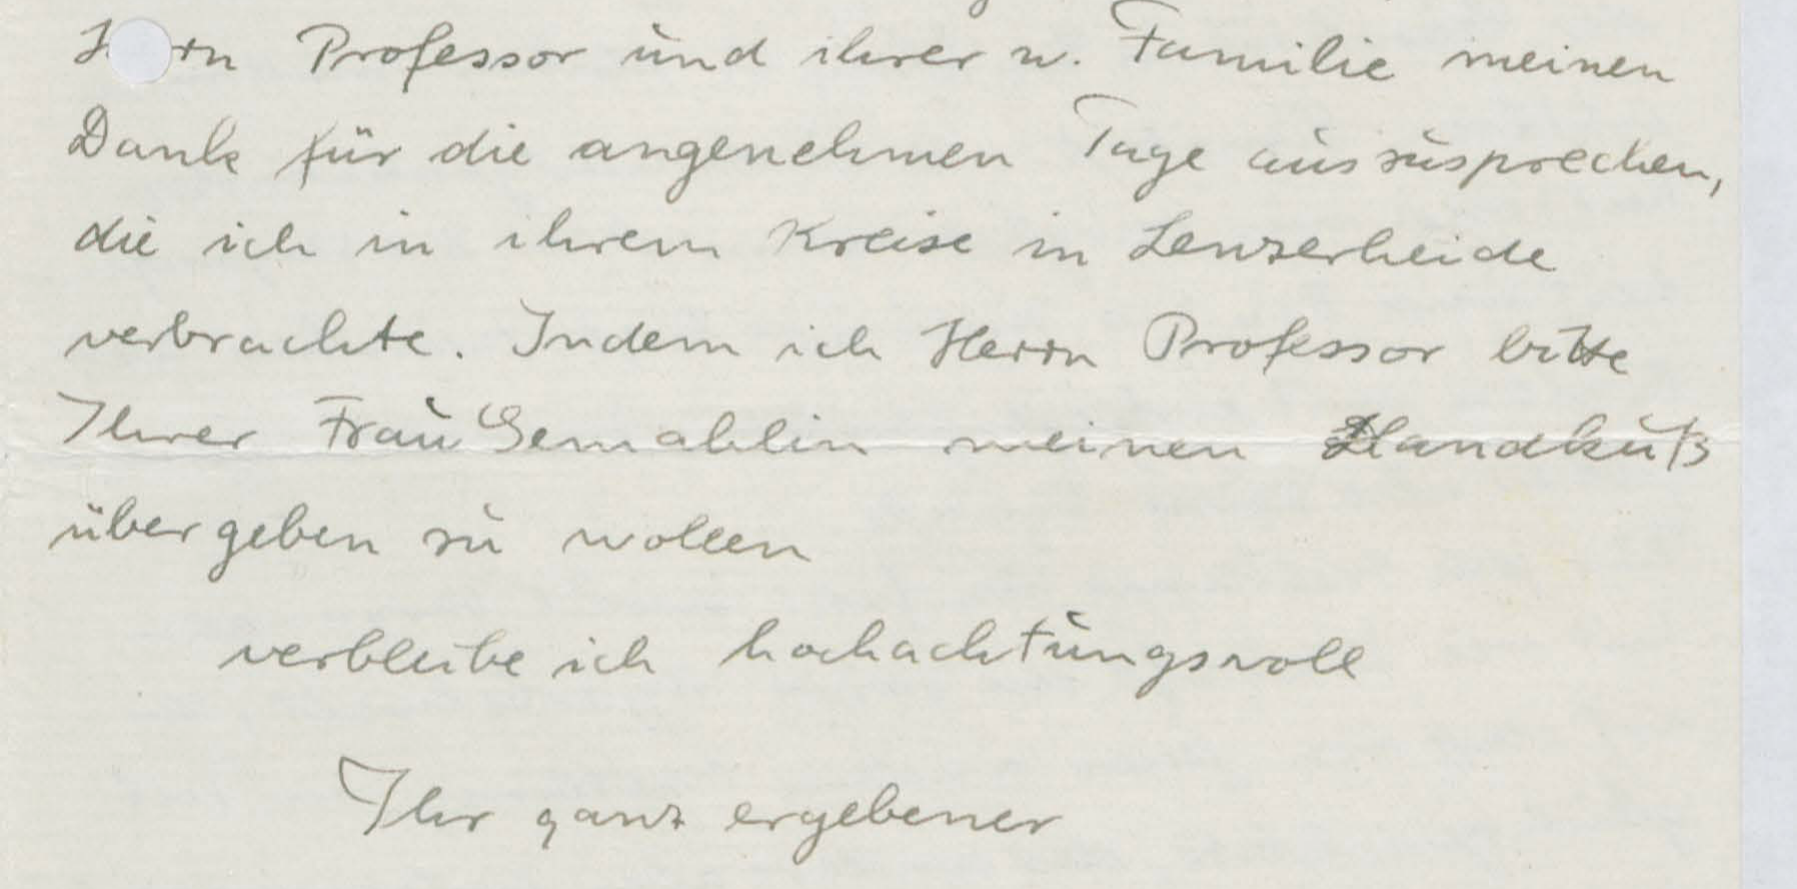 Herrn Professor und ihrer w. Familie meinen
Dank für die angenehmen Tage auszusprechen,
die ich in ihrem Kreise in Lenzerheide
verbrachte. Indem ich Herrn Professor bitte
Ihrer Frau Gemahlin meinen Handkuß
übergeben zu wollen
verbleibe ich hochachtungsvoll
Ihr ganz ergebener